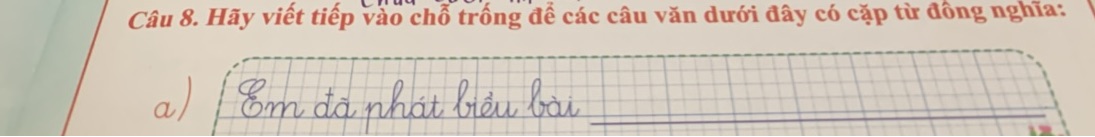 Câu 8. Hãy viết tiếp vào chỗ trống để các câu văn dưới đây có cặp từ đồng nghĩa:
a) Em đã phát biểu bài